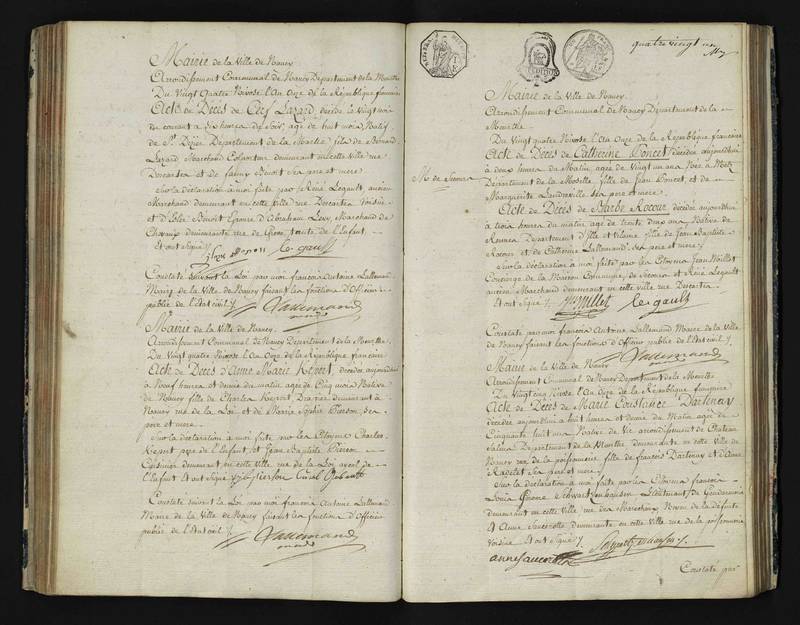 Mairie de la Ville de Nancy
Arrondissement Communal de Nancy Département de la Meurthe
Du Vingt Quatre Nivose l'An Onze de la République française
Acte de Décès de Cerf Lazard, décédé le Vingt trois
du courant à six heures du Soir, agé de huit mois Natif
de St Dizier Département de la Marne fils de Bernard
Lazard Marchand Colporteur demeurant en cette Ville rue
Descartes et de fanny Benoit Ses pere et mere
Sur la déclaration à moi faite par le René Legault ancien
Marchand demeurant en cette Ville rue Descartes Voisin
et d'Elie Benoit Epouse d'Abraham Levy, Marchand de
demeurante rue de tante de l'Enfant
Et ont Signé /.
le gault
Constaté Suivant la Loi par moi françois Antoine Lallemand
Maire de la Ville de Nancy faisant les fonctions d'Officier
public de l'Etat civil /.
Lallemand
maire
Mairie de la Ville de Nancy
Arrondissement Communal de Nancy Département de la Meurthe
Du Vingt quatre Nivose l'An Onze de la République française
Acte de Décès d'Anne Marie Kepert, décédée aujourdhui
à Neuf heures et demie du matin agée de Cinq mois Native
de Nancy fille de Charles Kepert Drapier demeurant à
Nancy rue de la Loi et de Marie Sophie Pierson, Ses
pere et mere
Sur la déclaration à moi faite par les Citoyens Charles
Kepert pere de l'Enfant et Jean Baptiste Pierson
Cuisinier demeurant en cette Ville rue de la Loi ayeul de
l'Enfant et ont Signé
Constaté suivant la Loi par moi françois Antoine Lallemand
Maire de la Ville de Nancy faisant les fonctions d'Officier
public de l'Etat civil /.
Lallemand
maire
quatre vingt un
Mairie de la Ville de Nancy.
Arrondissement Communal de Nancy Département de la
Meurthe
Du Vingt quatre Nivose l'An Onze de la République française
Acte de Décès de Catherine Poncet, décédée aujourdhui
à deux heures du Matin agée de Vingt un ans Née à Metz
Département de la Moselle fille de Jean Poncet et de
Marguerite Landreville Ses pere et mere
Mn de Secours
Acte de Décès de Barbe Recour décédée aujourdhui
à trois heures du matin agée de trente deux ans Native de
Rennes Département d'Ille et Vilaine fille de Jean Baptiste
Recour et de Catherine Lallemand Ses pere et mere /.
Sur la déclaration à moi faite par les Citoyens Jean Noillet
Concierge de la Maison Commune de Secours et René Legault
ancien Marchand demeurant en cette Ville rue Descartes
Et ont Signé /.
le gault
Constaté par moi françois Antoine Lallemand Maire de la Ville
de Nancy faisant les fonctions d'Officier public de l'Etat civil /.
Lallemand
Mairie de la Ville de Nancy
Arrondissement Communal de Nancy Département de la Meurthe
Du Vingt cinq Nivose l'An Onze de la République française
Acte de Décès de Marie Constance Dartenay
décédée aujourdhui à huit heures et demie du Matin agée de
Cinquante huit ans Native de Vic arrondissement de Chateau
Salins Département de la Meurthe demeurante en cette Ville de
Nancy rue de la poissonnerie fille de françois Dartenay et d'Anne
Ses pere et mere /.
Sur la déclaration à moi faite par les Citoyens françois
Louis Lieutenant de Gendarmerie
demeurant en cette Ville rue des Marechaux Neveu de la défunte
et Anne demeurante en cette Ville rue de la poissonnerie
Voisine Et ont Signé /.
Constaté par